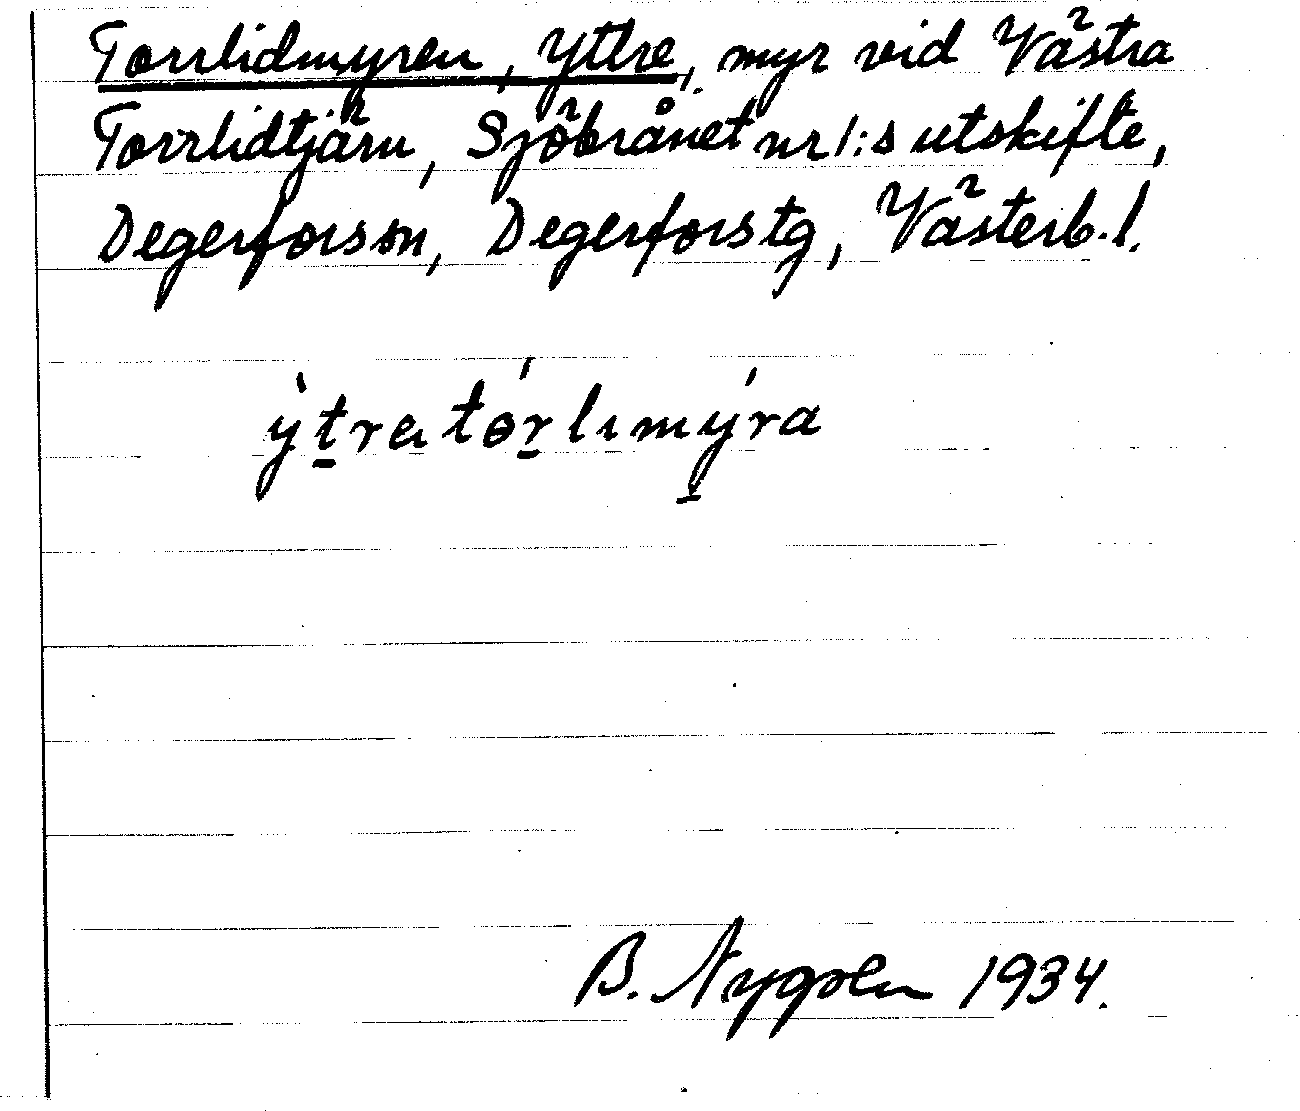 Torrlidmyren, Yttre, myr vid Västra
Torrlidtjärn, Sjöbrånet nr 1:s utskifte,
Degerforssn, Degerforstg, Västerb. l.
ỳt̲re tór̲lımý̲ra
B. Nygren 1934.